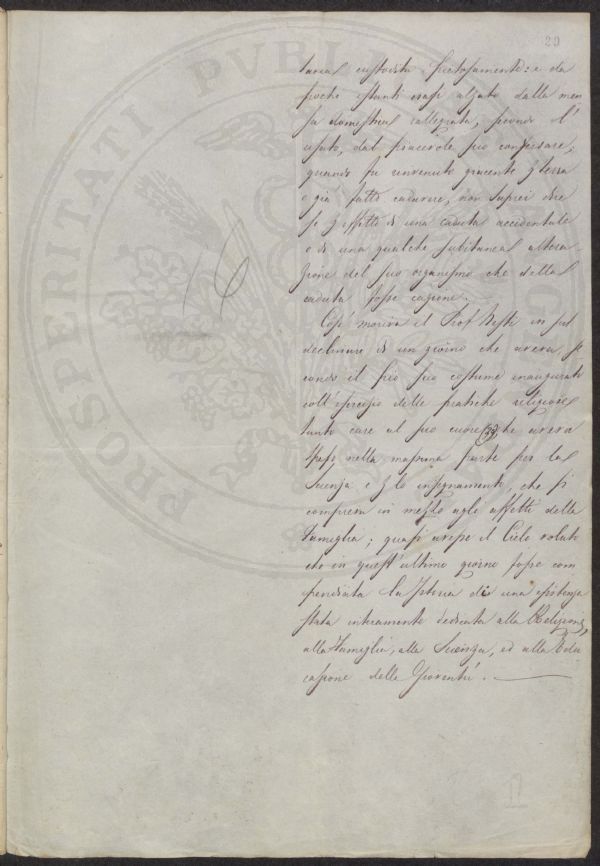 29
custodita pietosamente: e da
pochi istanti erasi alzato dalla men
sa domestica rallegrata, secondo l'
usato, dal piacevole suo conversare;
quando fu rinvenuto giacente p terra
e già fatto cadavere, non saprei dire
se p effetto di una caduta accidentale
o di una qualche subitanea altera-
zione del suo organismo che della
caduta fosse cagione.
Così moriva il Prof in sul
declinare di un giorno che aveva se
condo il pio suo costume inaugurato
coll'esercizio delle pratiche religiose
tanto care al suo cuore (33) che aveva
speso nella massima parte per la
Scienza e p lo insegnamento, che si
compieva in mezzo agli affetti della
Famiglia; quasi avesse il Cielo voluto
che in quest'ultimo giorno fosse com
pendiata la storia di una esistenza
stata interamente dedicata alla Religione,
alla Famiglia, alla Scienza, ed alla Edu
cazione della Gioventù.
PROSPERITATI PVBLI